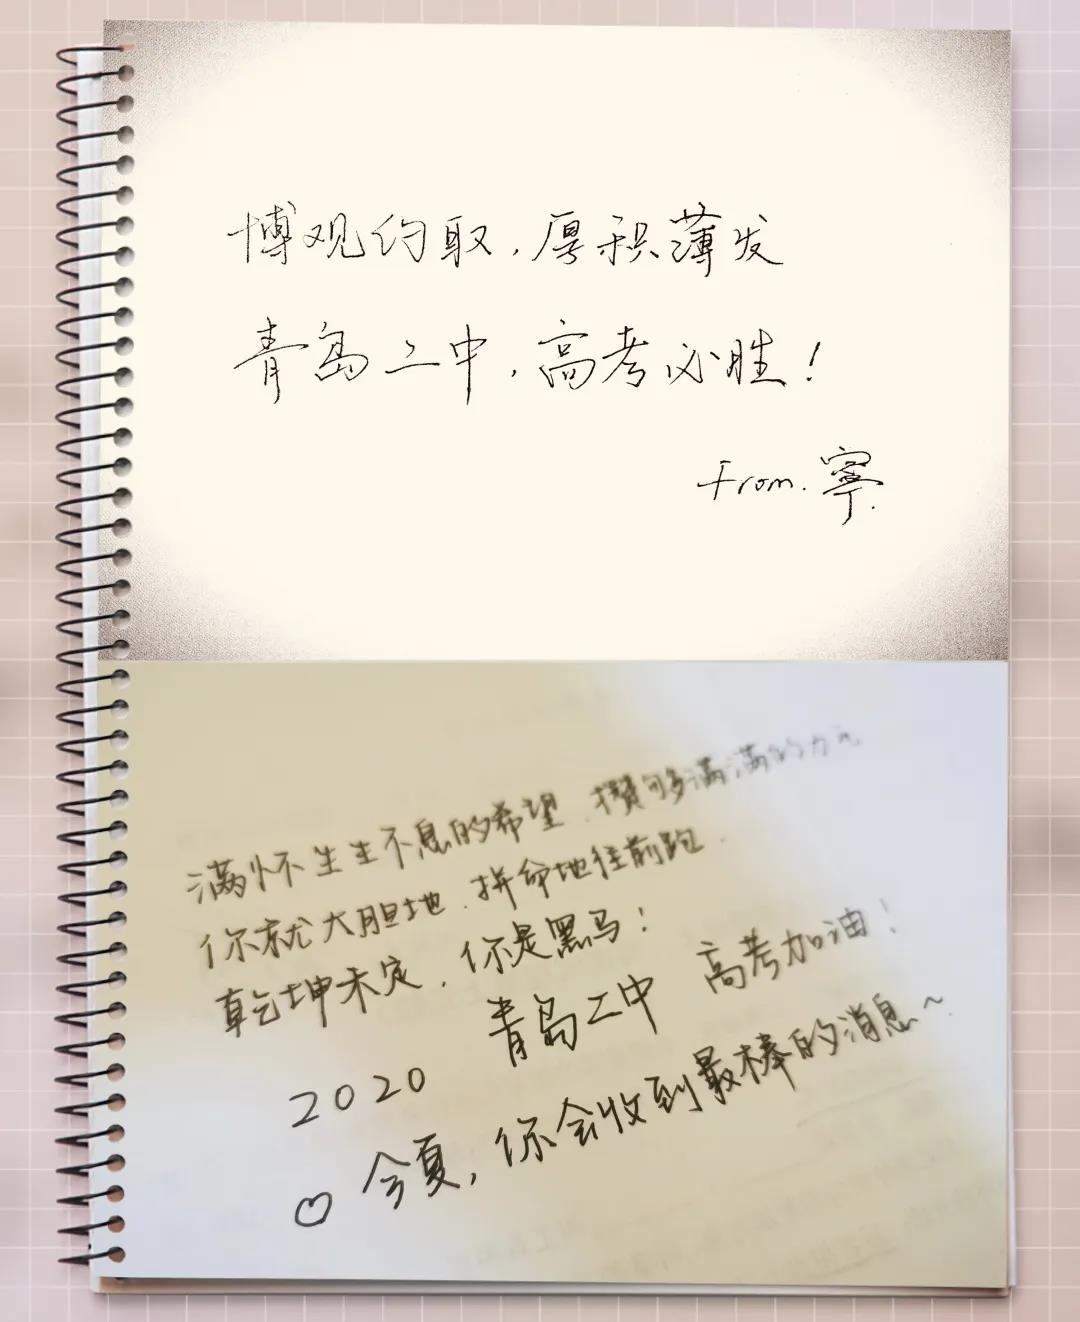 博观约取,厚积薄发
青岛二中,高考必胜!
From.寧.
满怀生生不息的希望.攒够多满满的力元
你就大胆地.拼命地往前跑.
乾坤未定,你是黑马!
2020 青岛二中 高考加油!
♡ 今夏,你会收到最棒的消息~